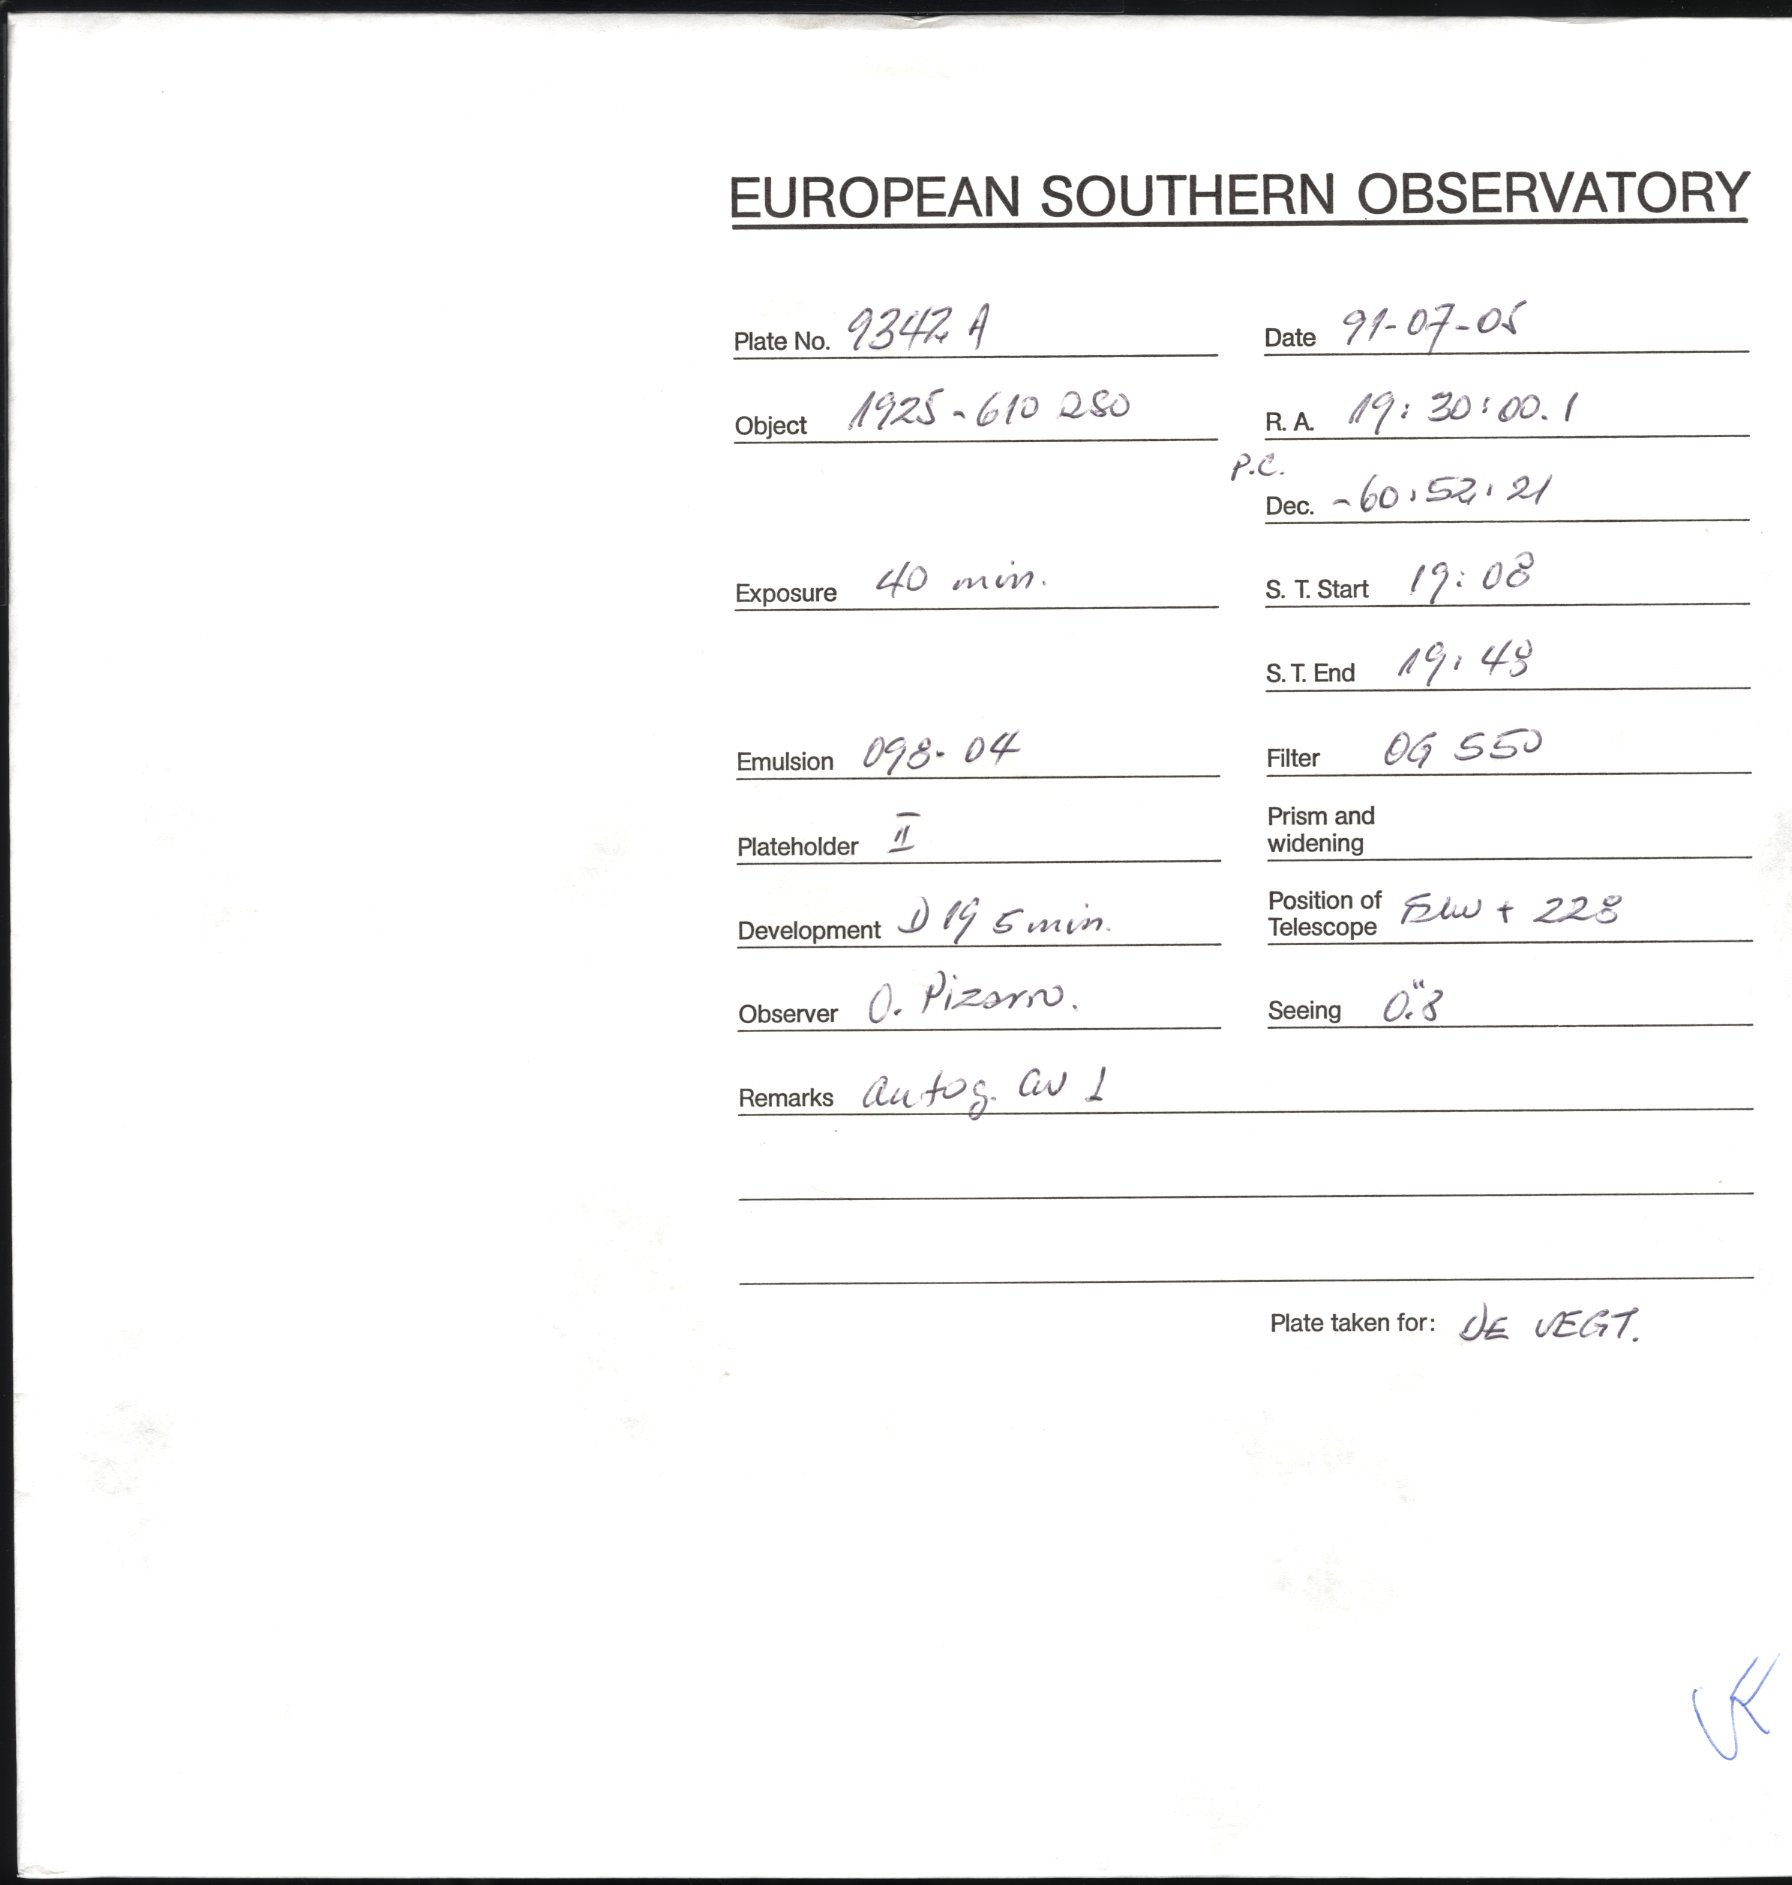 EUROPEAN SOUTHERN OBSERVATORY
Plate No. 9342 A Date 91-07-05
Object 1925-610 QSO R. A. 19:30:00.1
P.C.
Dec. -60:52:21
Exposure 40 min. S. T. Start 19:08
S. T. End 19:48
Emulsion 098-04 Filter OG 550
Plateholder II Prism and
widening
Development D 19 5 min. Position of
Telescope + 228
Observer O. Pizarro. Seeing 0."8
Remarks Autog. 1
Plate taken for: DE VEGT.